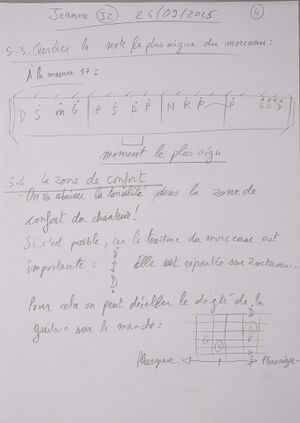 Jeanne 52 24/09/2025 4
5-3. Chercher la note la plus aigue du morceau:
À la mesure 17:
D S m G P S D P N R R P
moment le plus aigu
5.4 La zone de confort
On va abaisser la tonalité dans la zone de
confort du chanteur!
Si c'est possible, car le tessiture du morceau est
importante: D D Elle est répartie sur 2 octaves...
Pour cela on peut décaller le doigté de la
guitare sur le manche:
D
G P
Plus grave Plus aigu